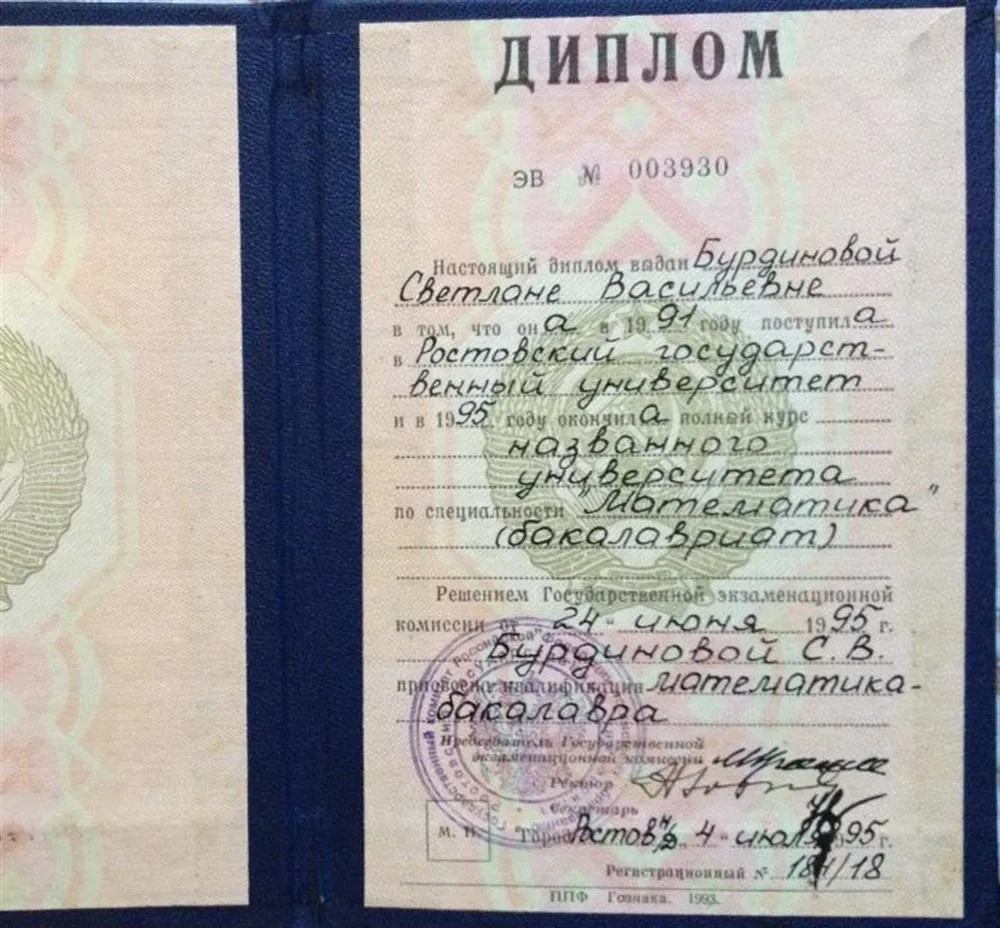 ДИПЛОМ
ЭВ № 003930
Настоящий диплом выдан Бурдиновой
Светлане Васильевне
в том, что он а в 19 91 году поступил а
в Ростовский государст-
венный университет
и в 19 95 году окончил а полный курс
названного
университета
по специальности "Математика"
(бакалавриат)
Решением Государственной экзаменационной
комиссии от 24 " июня 19 95 г.
Бурдиновой С.В.
присвоена квалификация математика-
бакалавра
Председатель Государственной
экзаменационной комиссии
Ректор
Секретарь
М. П.
Город Ростов н/Д 4 " июля 1995 г.
Регистрационный № /18
ППФ Гознака. 1993.